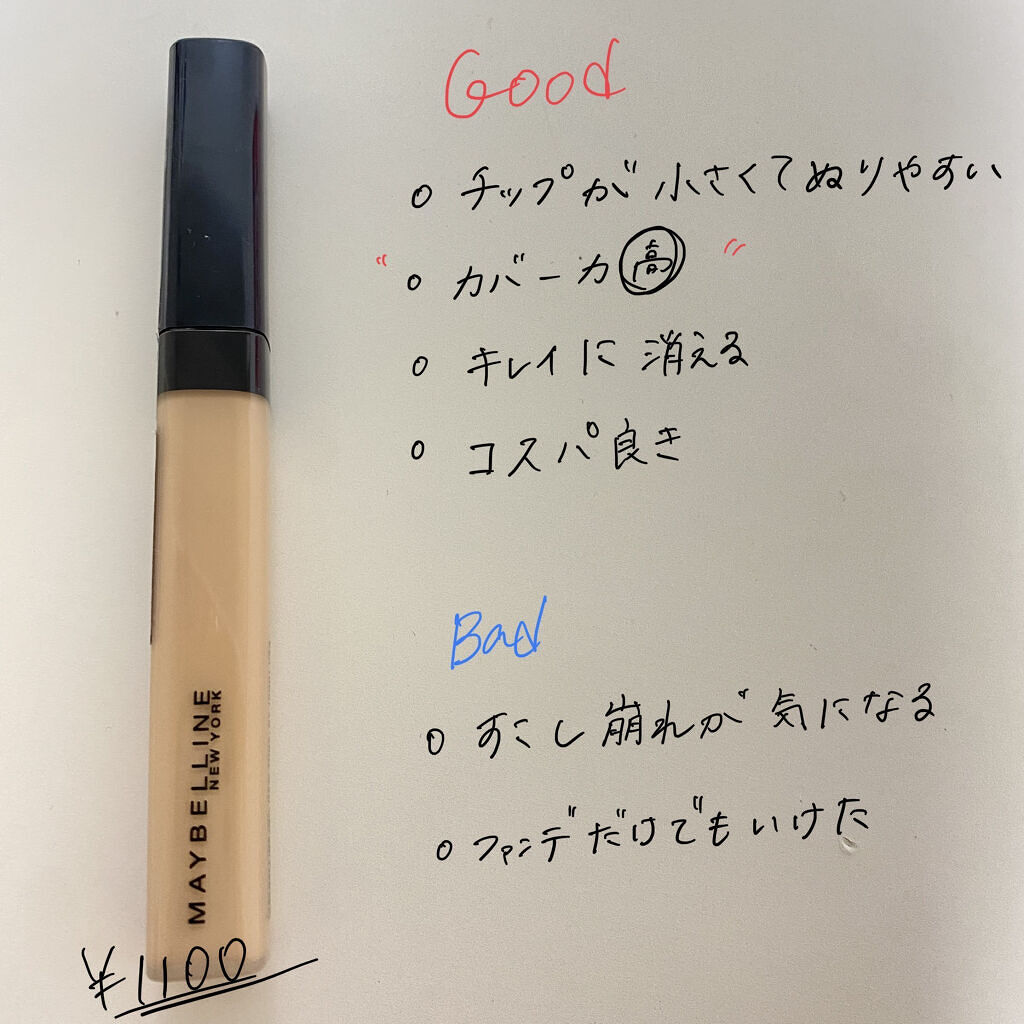 Good
○ チップが小さくてぬりやすい
"○ カバー力高"
○ キレイに消える
○ コスパ良き
Bad
○ すこし崩れが気になる
○ ファンデだけでもいけた
MAYBELLINE
NEW YORK
¥1100